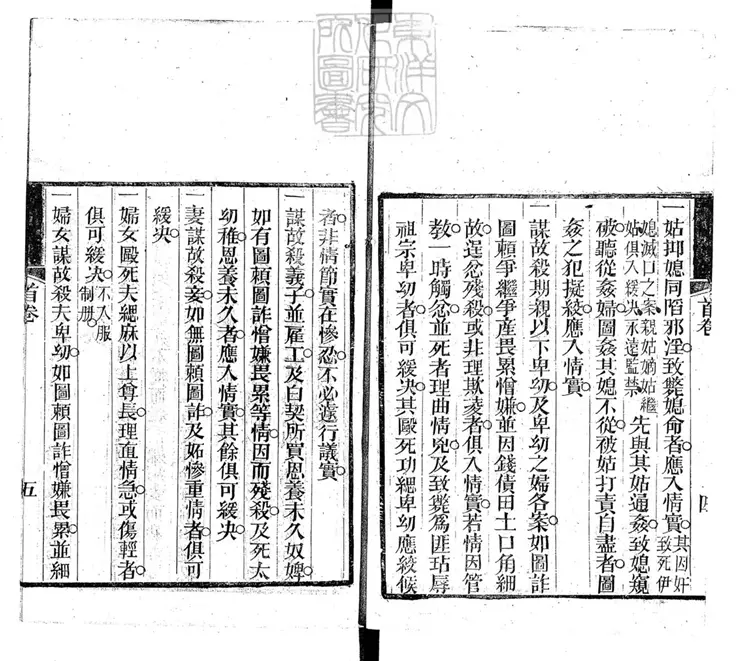 一姑抑媳同陷邪淫致斃媳命者應入情實其因奸致死伊
媳滅口之案親姑嫡姑繼姑俱入緩决永遠監禁先與其姑通姦致媳窺
破聽從姦婦圖姦其媳不從被姑打責自盡者圖
姦之犯擬絞應入情實
一謀故殺期親以下卑幼及卑幼之婦各案如圖詐
圖賴爭繼爭產畏累憎嫌並因錢債田土口角細
故逞忿殘殺或非理欺凌者俱入情實若情因管
教一時觸忿並死者理曲情兇及致斃爲匪玷辱
祖宗卑幼者俱可緩决其毆死功緦卑幼應絞候
首卷
四
者非情節實在慘忍不必遽行議實
一謀故殺義子並雇工及白契所買恩養未久奴婢
如有圖賴圖詐憎嫌畏累等情因而殘殺及死太
幼稚恩養未久者應入情實其餘俱可緩决
一妻謀故殺妾如無圖賴圖詐及妬慘重情者俱可
緩决
一婦女毆死夫緦麻以上尊長理直情急或傷輕者
俱可緩决不入服制册
一婦女謀故殺夫卑幼如圖賴圖詐憎嫌畏累並細
首卷
五
東洋文化研究所圖書